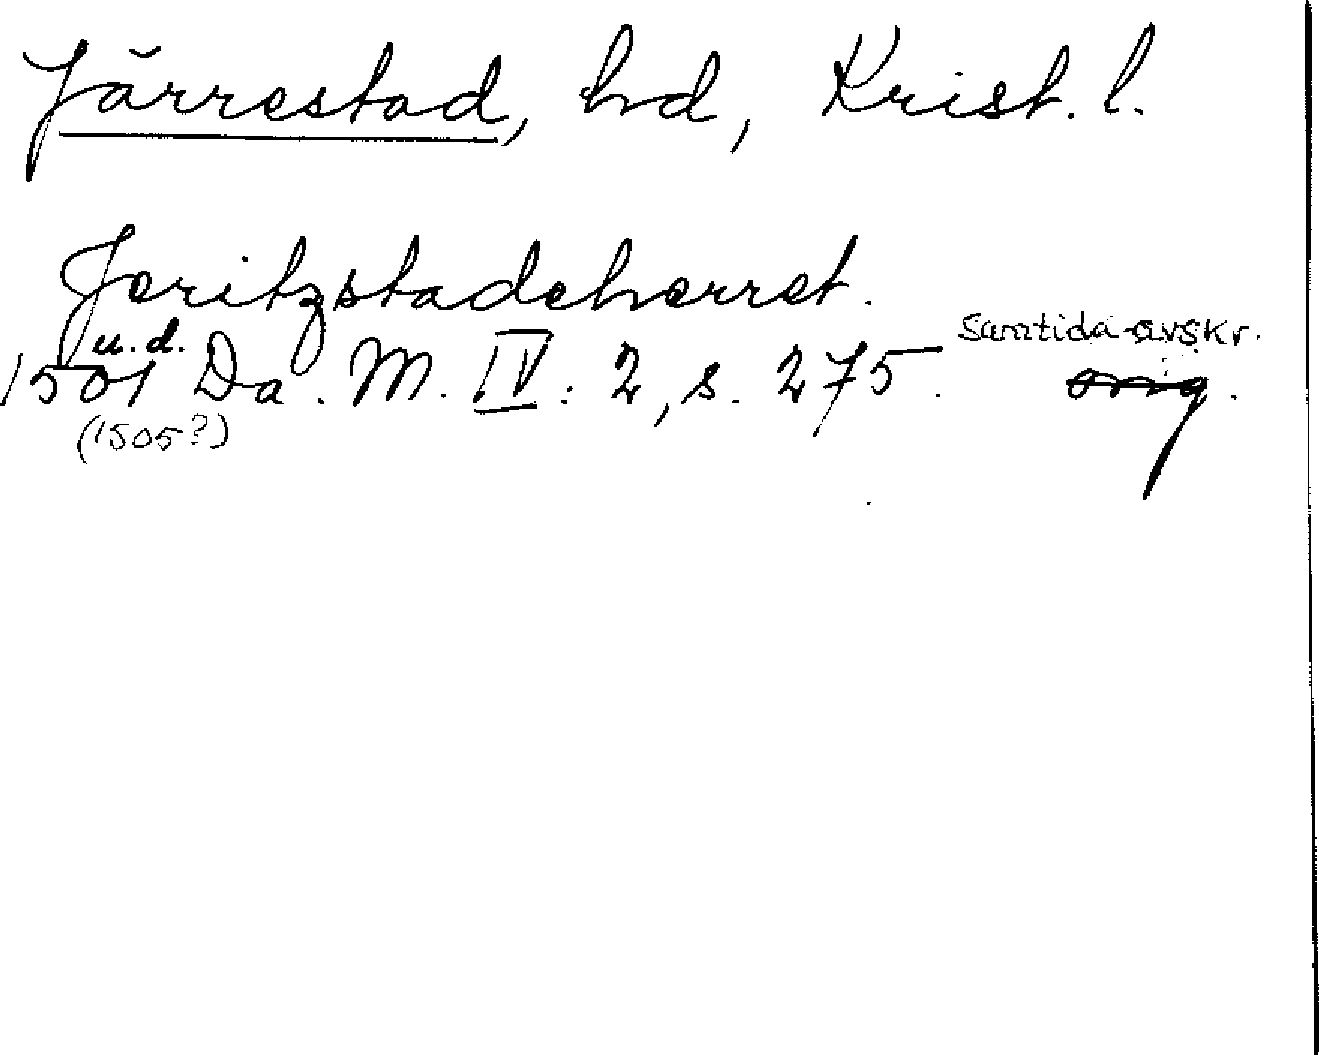 Järrestad, hd, Krist. l.
Jeritzstadeherret.
u.d. samtida avskr.
1501 Da. M. IV: 2, s. 275. orig.
(1505?)